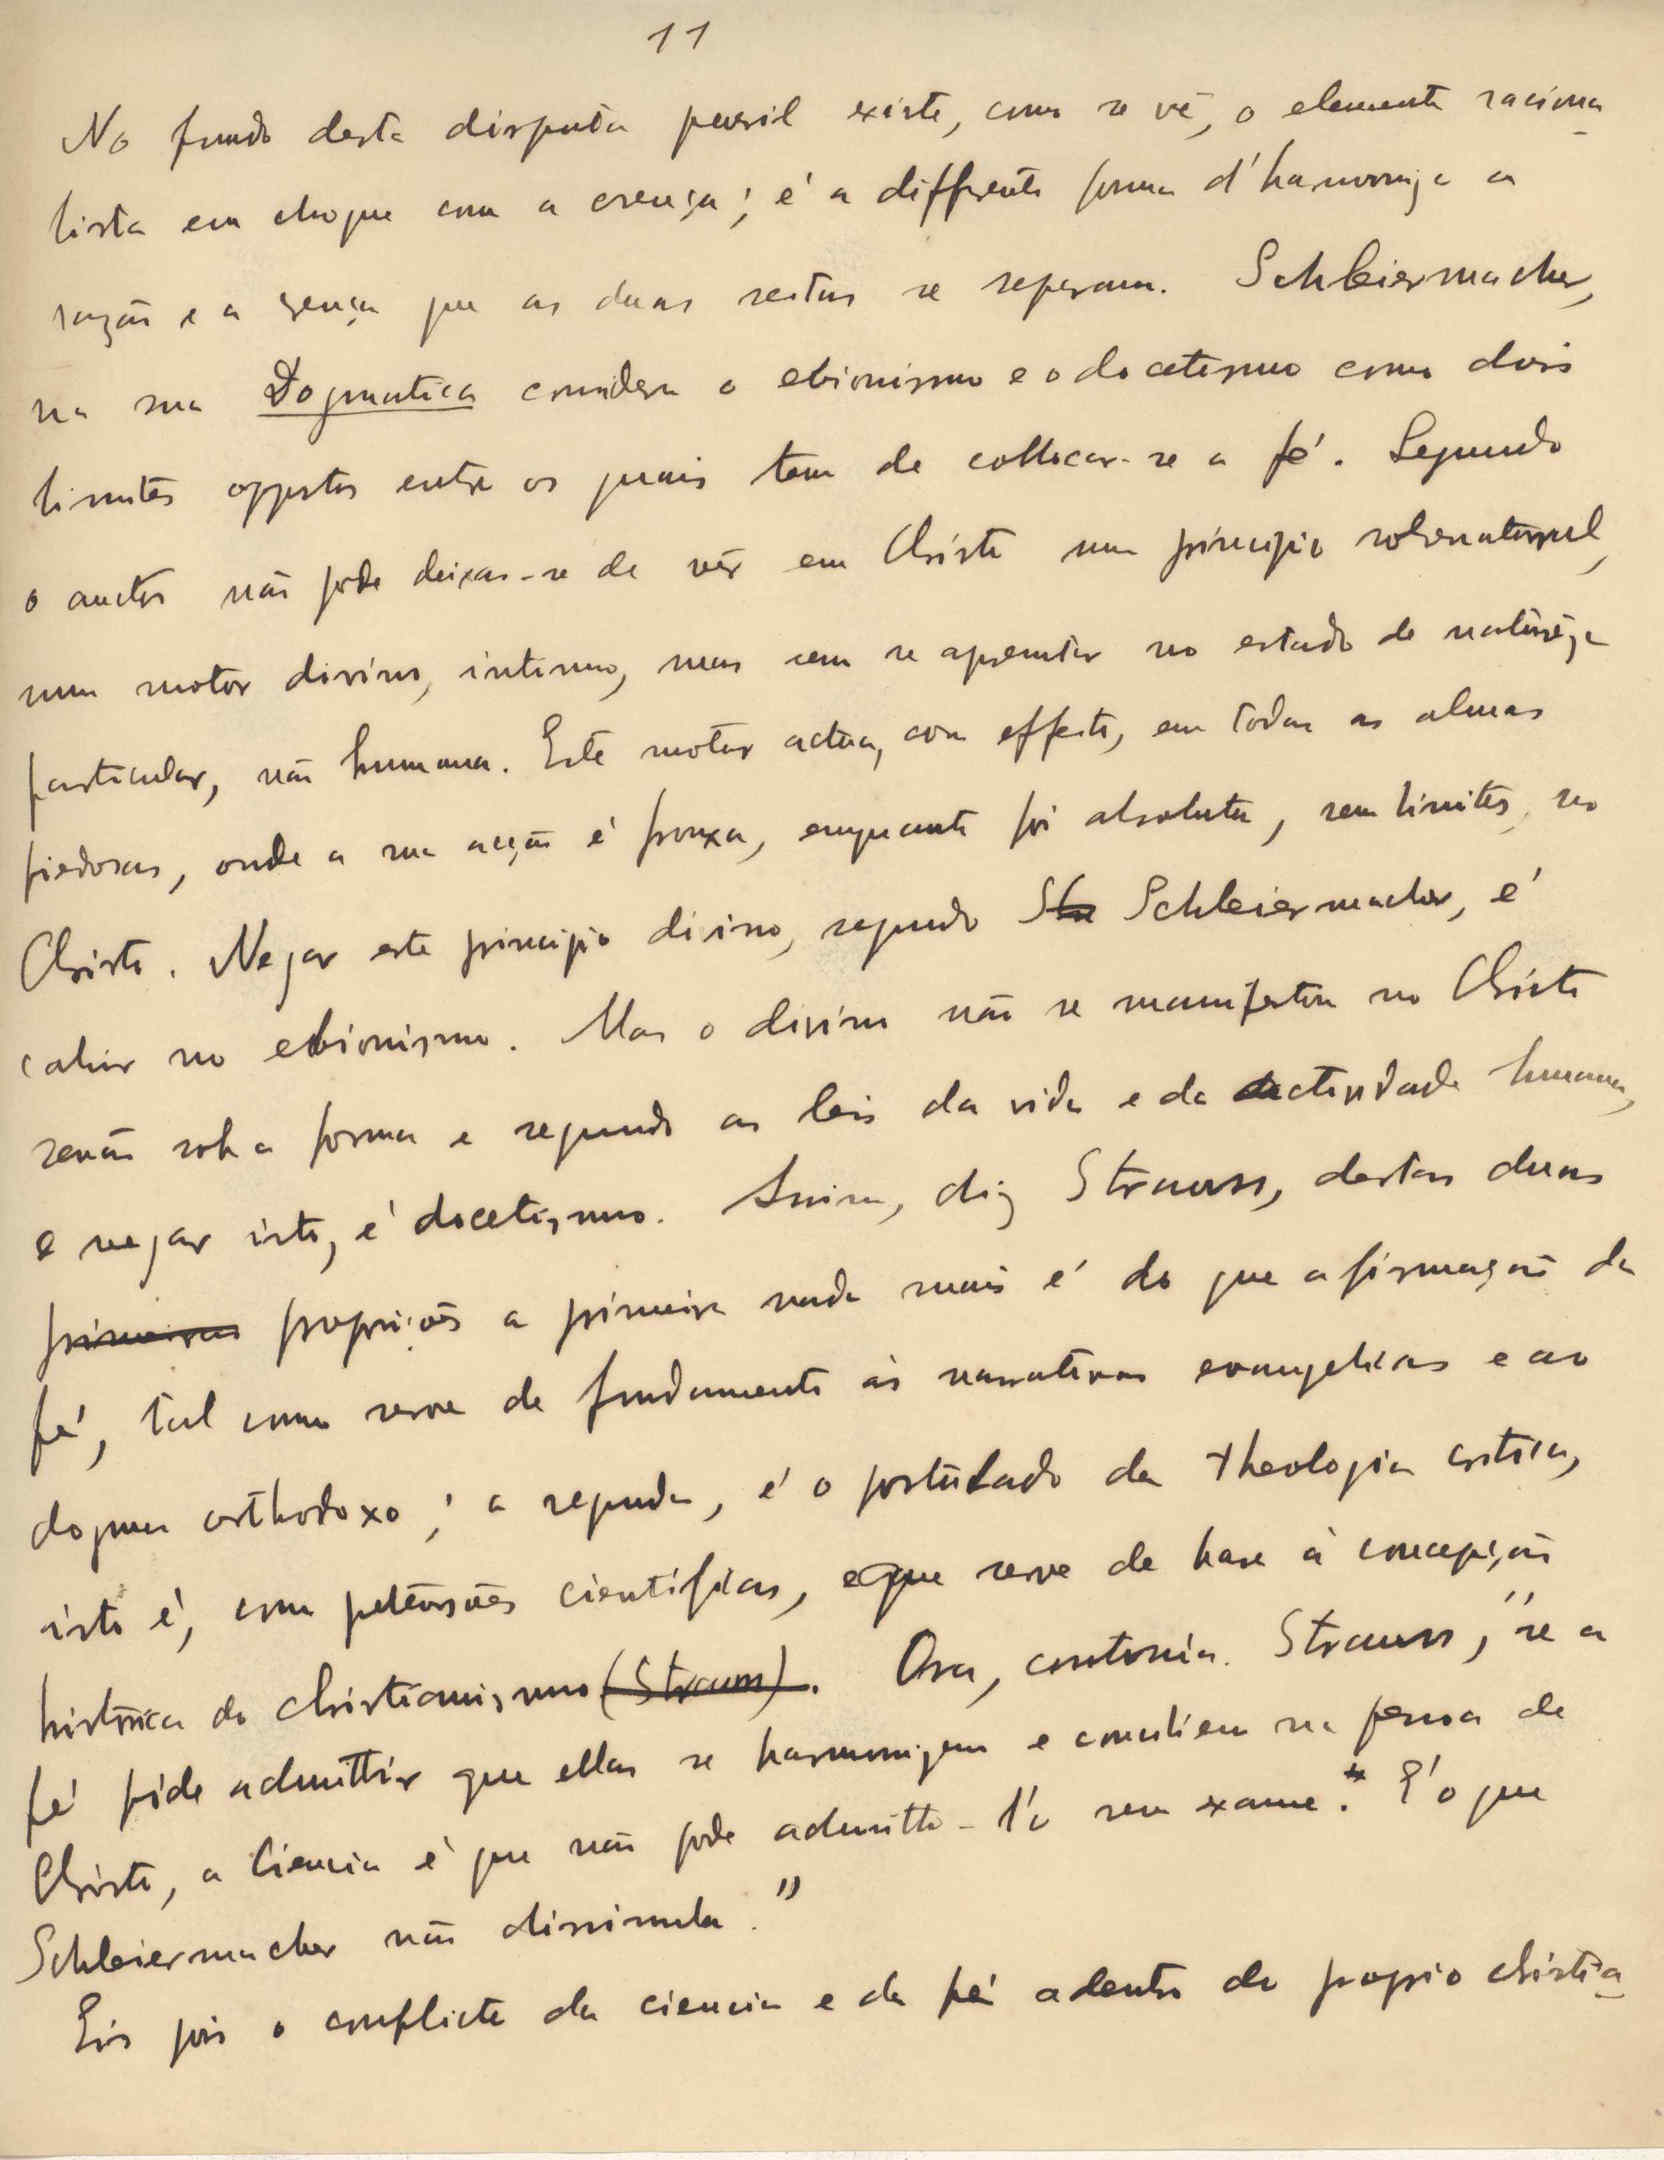 11
No fundo desta disputa pueril existe, como se vê, o elemento raciona
lista em choque com a crença; é a differente forma d'harmonizar a
razão e a crença que as duas seitas se separam. Schleiermacher,
na sua Dogmatica considera o ebionismo e o docetismo como dois
limites oppostos entre os quais tem de collocar-se a fé. Segundo
o auctor não póde deixar-se de vêr em Christo um principio sobrenatural,
num motor divino, intimo, mas sem se apresentar no estado de natureza
particular, não humana. Este motor actua, com effeito, em todas as almas
piedosas, onde a sua acção é frouxa, emquanto foi absoluta, sem limites, no
Christo. Negar este principio divino, segundo Str Schleiermacher, é
cahir no ebionismo. Mas o divino não se manifestou no Christo
senão sob a forma e segundo as leis da vida e da actividade humana,
e negar isto, é docetismo. Assim, diz Strauss, destas duas
primeiras proposições a primeira nada mais é do que afirmação da
fé, tal como serve de fundamento ás narrativas evangelicas e ao
dogma orthodoxo; a segunda, é o postulado da theologia critica,
isto é, com petensões cientificas, e que serve de base á concepção
histórica do christianismo (Strauss). Ora, contonúa Strauss, "se a
fé póde admittir que ellas se harmonizem e conciliem na pessoa de
Christo, a ciencia é que não pode admitti-l'o sem exame. É o que
Schleiermacher não dissimula."
Eis pois o conflicto da ciencia e da fé adentro do proprio christia